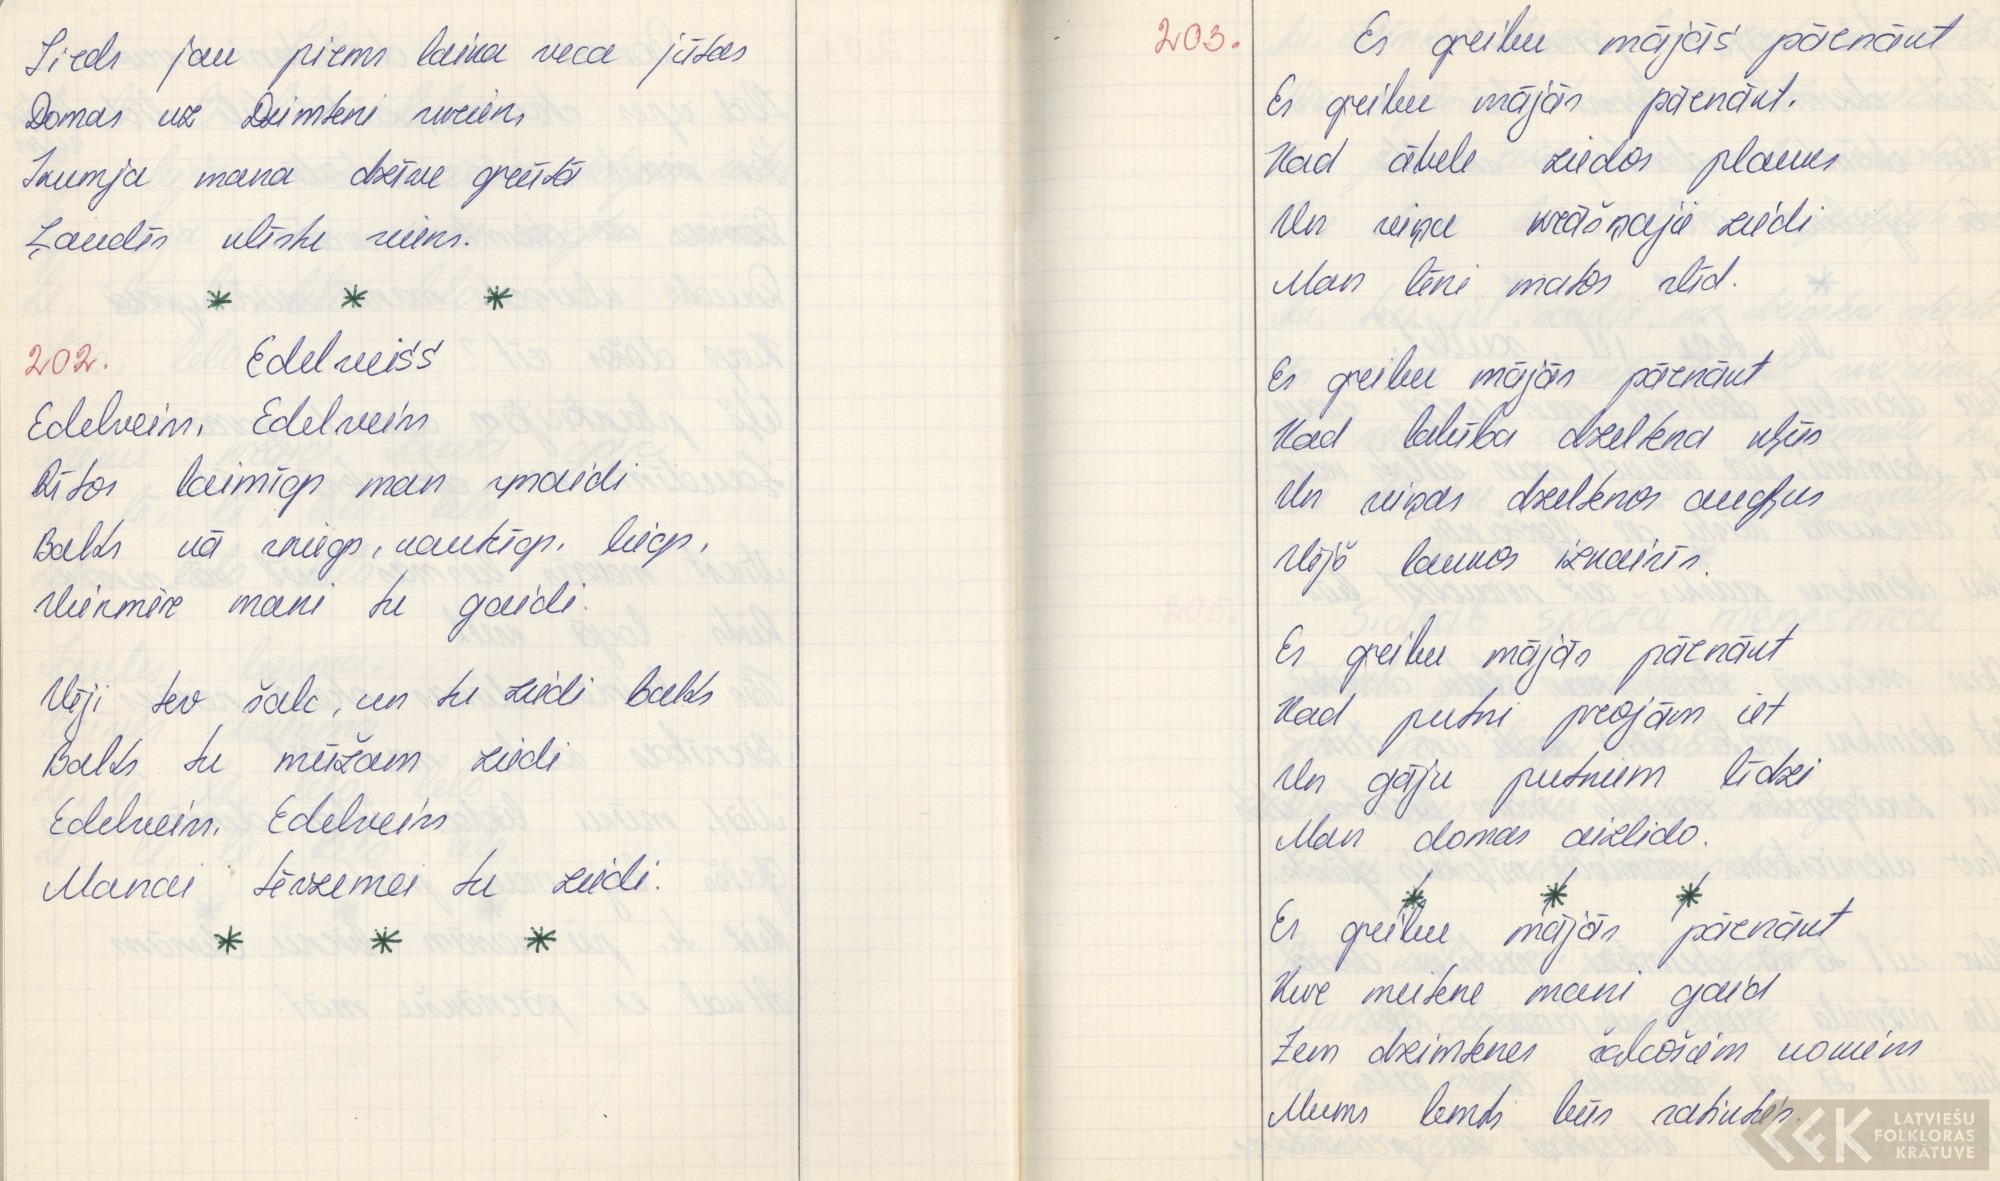 Sirds jau pirms laika veca jūtas
Domas uz Dzimteni sveiciens
Skumja mana dzīve grūtā
Ļaudīs klīstu viens.
* * *
202. Edelveiss
Edelveiss, Edelveiss
Rītos laimīgs man smaidi
Balts kā sniegs, kautrīgs, liegs,
Vienmēr mani tu gaidi.
Vēji tev šalc, un tu ziedi balts
Balts tu mūžam ziedi
Edelveiss, Edelveiss
Manai tēvzemei tu ziedi.
* * *
203. Es gribu mājās pārnākt
Es gribu mājās pārnākt.
Kad ābele ziedos plauks
Un viņa krāšņajie ziedi
Man lēni matos slīd.
Es gribu mājās pārnākt
Kad labība dzeltena kļūs
Un viņas dzeltenos augļus
Vējš laukos izkaisīs.
Es gribu mājās pārnākt
Kad putni projām iet
Un gāju putniem līdzi
Man domas aizlido.
* * *
Es gribu mājās pārnākt
Kur meitene mani gaid
Zem dzimtenes šalcošiem kokiem
Mums lemts būs satikties.
LATVIEŠU
FOLKLORAS
KRĀTUVE